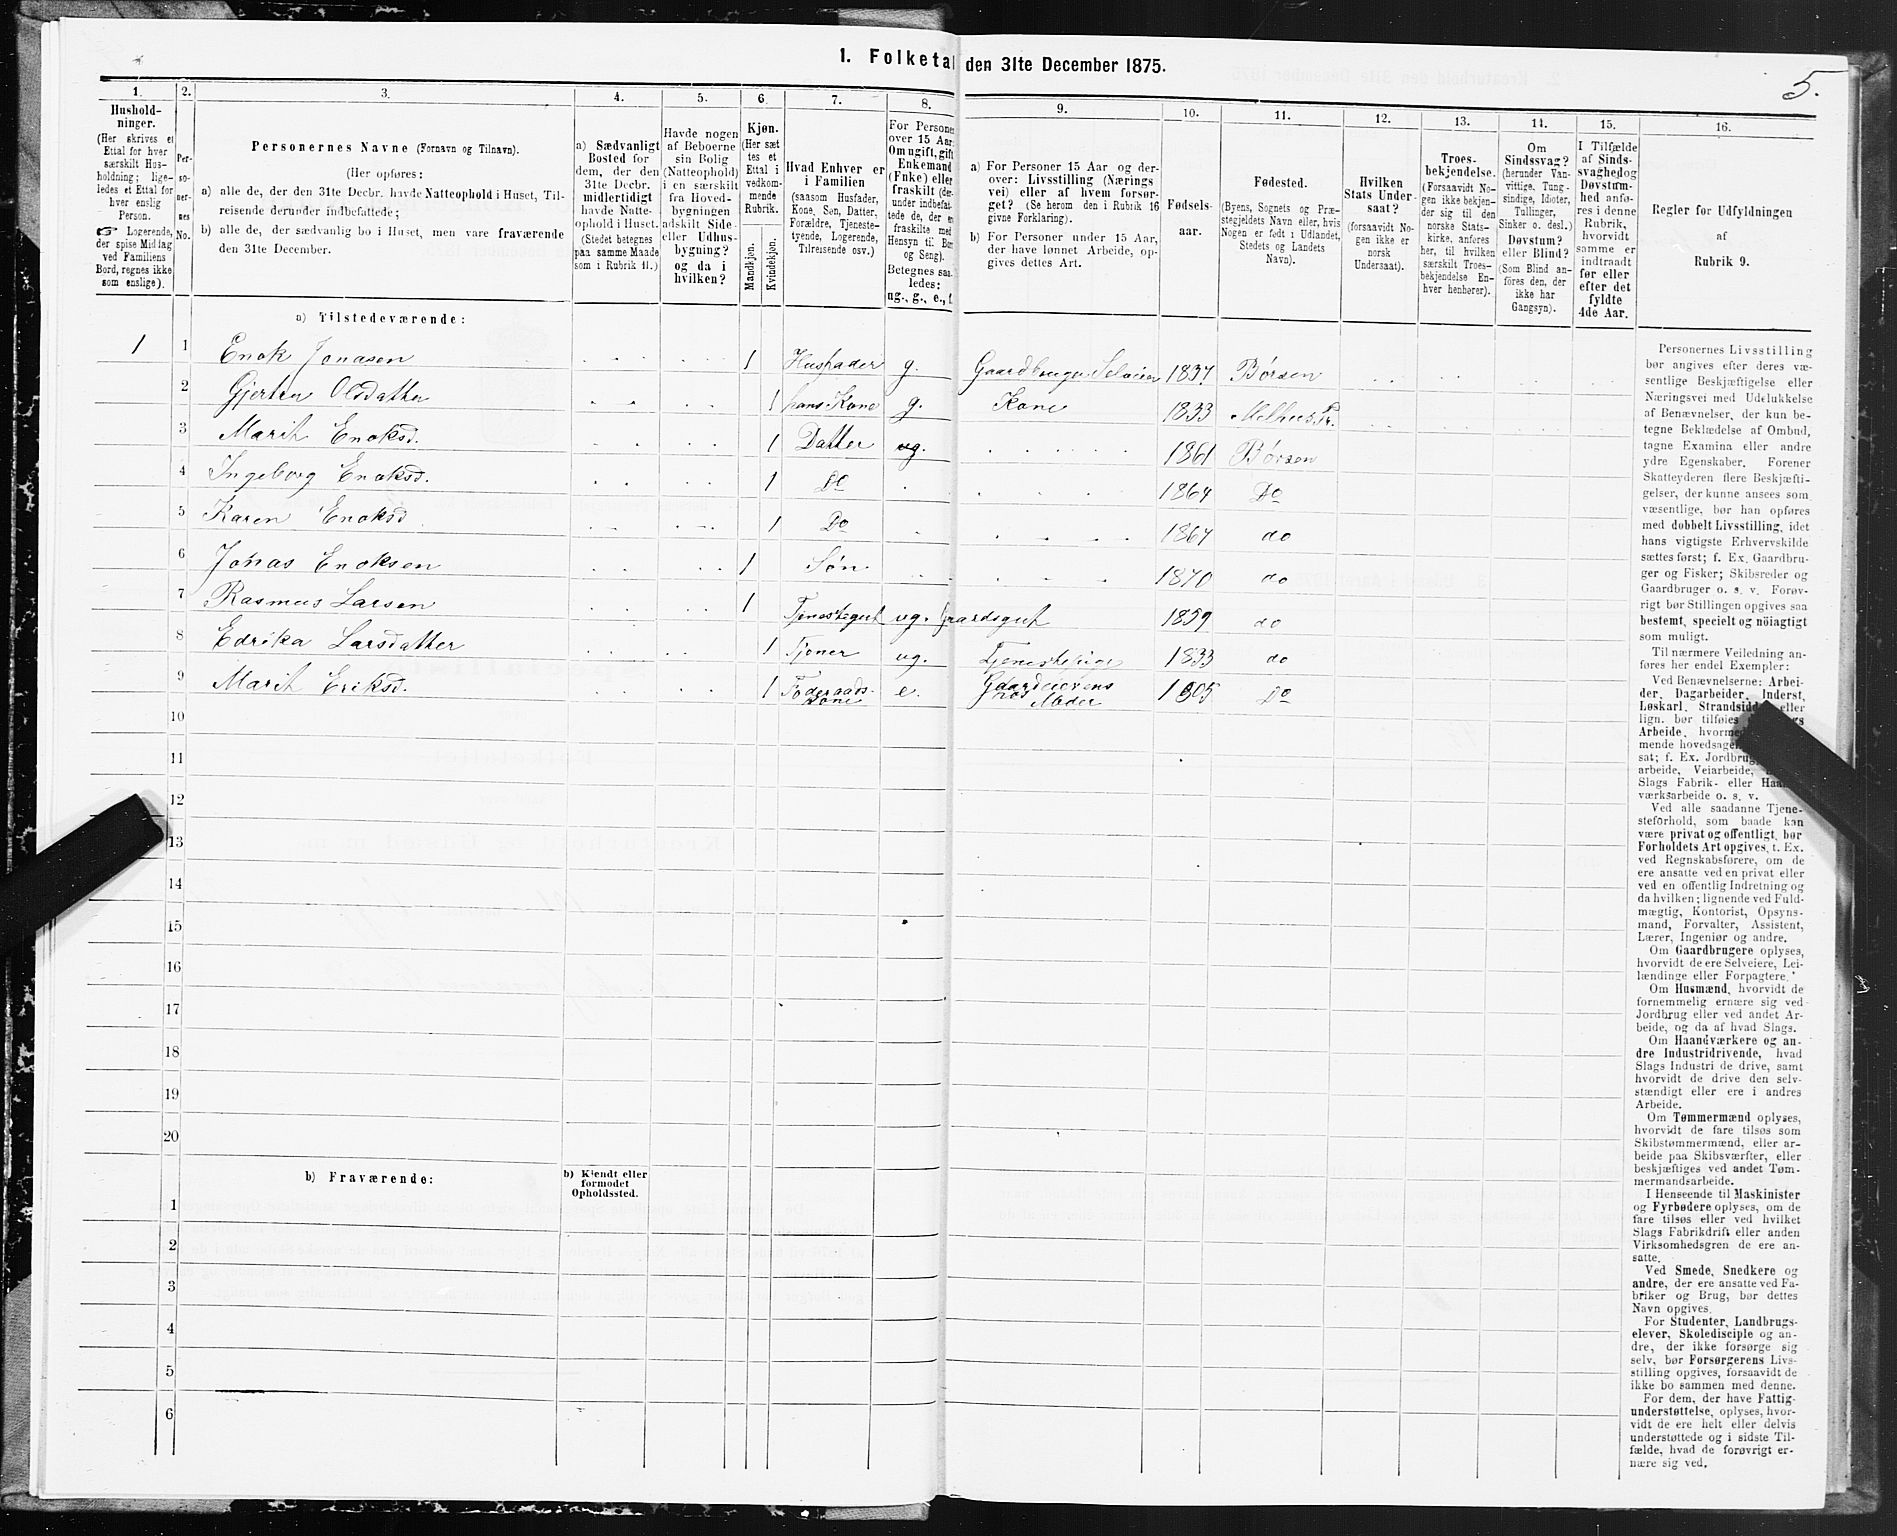 1. Folketal den 31te December 1875.
5.
1. 2. 3. 4. 5. 6. 7. 8. 9. 10. 11. 12. 13. 14. 15. 16.
Hushold-
ninger.
(Her skrives et
Ettal for hver
særskilt Hus-
holdning; lige-
ledes et Ettal for
hver enslig
Person.
☞ Logerende,
der spise Middag
ved Familiens
Bord, regnes ikke
som enslige).
Per-
so-
ner-
nes
No.
Personernes Navne (Fornavn og Tilnavn).
(Her opføres:
a) alle de, der den 31te Decbr. havde Natteophold i Huset, Til-
reisende derunder indbefattede;
b) alle de, der sædvanlig bo i Huset, men vare fraværende
den 31te December.
a) Sædvanligt
Bosted for
dem, der den
31te Decbr.
midlertidigt
havde Natte-
ophold i Huset.
(Stedet betegnes
paa samme Maade
som i Rubrik 11.)
Havde nogen
af Beboerne
sin Bolig
(Natteophold)
i en særskilt
fra Hoved-
bygningen
adskilt Side-
eller Udhus-
bygning?
og da i
hvilken?
Kjøn.
(Her sæt
tes et
Ettal i
vedkom-
mende
Rubrik.
Mandkjøn.
Kvindekjøn.
Hvad Enhver er
i Familien
(saasom Husfader,
Kone, Søn, Datter,
Forældre, Tjeneste-
tyende, Logerende,
Tilreisende osv.)
For Personer
over 15 Aar:
Om ugift, gift
Enkemand
(Enke) eller
fraskilt (der-
under indbefat-
tede de, der ere
fraskilte med
Hensyn til Bord
og Seng).
Betegnes saa-
ledes:
ug., g., e., f.
a) For Personer 15 Aar og der-
over: Livsstilling (Nærings
vei) eller af hvem forsør-
get? (Se herom den i Rubrik 16
givne Forklaring).
b) For Personer under 15 Aar,
der have lønnet Arbeide, op-
gives dettes Art.
Fødsels-
aar.
Fødested.
(Byens, Sognets og Præ-
stegjeldets Navn eller, hvis
Nogen er født i Udlandet,
Stedets og Landets
Navn).
Hvilken
Stats Under-
saat?
(forsaavidt No-
gen ikke er
norsk
Undersaat).
Troes-
bekjendelse.
(Forsaavidt No-
gen ikke bekjen-
der sig til den
norske Stats-
kirke, anføres
her, til hvilken
særskilt Troes-
bekjendelse En-
hver henhører).
Om
Sindssvag?
(herunder Van-
vittige, Tung-
sindige, Idioter,
Tullinger,
Sinker o. desl.)
Døvstum?
eller Blind?
(Som Blind an-
føres den, der
ikke har
Gangsyn).
I Tilfælde
af Sinds-
svaghed og
Døvstum-
hed anfø-
res i denne
Rubrik,
hvorvidt
samme er
indtraadt
før eller
efter det
fyldte
4de Aar.
Regler for Udfyldningen
af
Rubrik 9.
a) Tilstedeværende:
1 1 Enok Jonasen 1 Husfader g. Gaardbruger Selveier 1837 Børsen
2 Gjertru Olsdatter 1 hans Kone g. Kone 1833 Melhus Pr.
3 Marit Enoksd. 1 Datter ug. 1861 Børsen
4 Ingeborg Enoksd. 1 Do 1864 Do
5 Karen Enoksd 1 Do 1867 do
6 Jonas Enoksen 1 Søn 1870 do
7 Rasmus Larsen 1 Tjenestegut ug. Gaardsgut 1859 do
8 Edrika Larsdatter 1 Tjener ug. Tjenestepige 1833 do
9 Marit Eriksd. 1 Føderaads- e. Gaardeierens 1805 Do
Kone Moder
10
11
12
13
14
15
16
17
18
19
20
b) Fraværende:
b) Kjendt eller
formodet
Opholdssted.
1
2
3
4
5
6
Personernes Livsstilling
bør angives efter deres væ-
sentlige Beskjæftigelse eller
Næringsvei med Udelukkelse
af Benævnelser, der kun be-
tegne Beklædelse af Ombud,
tagne Examina eller andre
ydre Egenskaber. Forener
Skatteyderen flere Beskjæfti-
gelser, der kunne ansees som
væsentlige, bør han opføres
med dobbelt Livsstilling, idet
hans vigtigste Erhvervskilde
sættes først; f. Ex. Gaardbru-
ger og Fisker; Skibsreder og
Gaardbruger o. s. v. Forøv-
rigt bør Stillingen opgives saa
bestemt, specielt og nöiagtigt
som muligt.
Til nærmere Veiledning an-
føres her endel Exempler:
Ved Benævnelserne: Arbei-
der, Dagarbeider, Inderst,
Løskarl, Strandsidder eller
lign. bør tilføies
Arbeide, hvormed
mende hovedsagen
sat; f. Ex. Jordbrug
arbeide, Veiarbeide,
Slags Fabrik- eller Haand-
værksarbeide o. s. v.
Ved alle saadanne Tjene-
steforhold, som baade kan
være privat og offentligt, bør
Forholdets Art opgives, f. Ex.
ved Regnskabsførere, om de
ere ansatte ved en privat eller
ved en offentlig Indretning og
da hvilken; lignende ved Fuld-
mægtig, Kontorist, Opsyns-
mand, Forvalter, Assistent,
Lærer, Ingeniør og andre.
Om Gaardbrugere oplyses,
hvorvidt de ere Selveiere, Lei-
lændinge eller Forpagtere.
Om Husmænd, hvorvidt de
fornemmelig ernære sig ved
Jordbrug eller ved andet Ar-
beide, og da af hvad Slags.
Om Haandværkere og an-
dre Industridrivende, hvad
Slags Industri de drive, samt
hvorvidt de drive den selv-
stændigt eller ere i andres
Arbeide.
Om Tømmermænd oplyses,
hvorvidt de fare tilsøs som
Skibstømmermænd, eller ar-
beide paa Skibsværfter, eller
beskjæftiges ved andet Tøm-
mermandsarbeide.
I Henseende til Maskinister
og Fyrbødere oplyses, om de
fare tilsøs eller ved hvilket
Slags Fabrikdrift eller anden
Virksomhedsgren de ere an-
satte.
Ved Smede, Snedkere og
andre, der ere ansatte ved Fa-
briker og Brug, bør dettes
Navn opgives.
For Studenter, Landbrugs-
elever, Skoledisciple og an-
dre, der ikke forsørge sig
selv, bør Forsørgerens Livs-
stilling opgives, forsaavidt de
ikke bo sammen med denne.
For dem, der have Fattig-
understøttelse, oplyses, hvor-
vidt de ere helt eller delvis
understøttede og i sidste Til-
fælde, hvad de forøvrigt er-
nære sig ved.